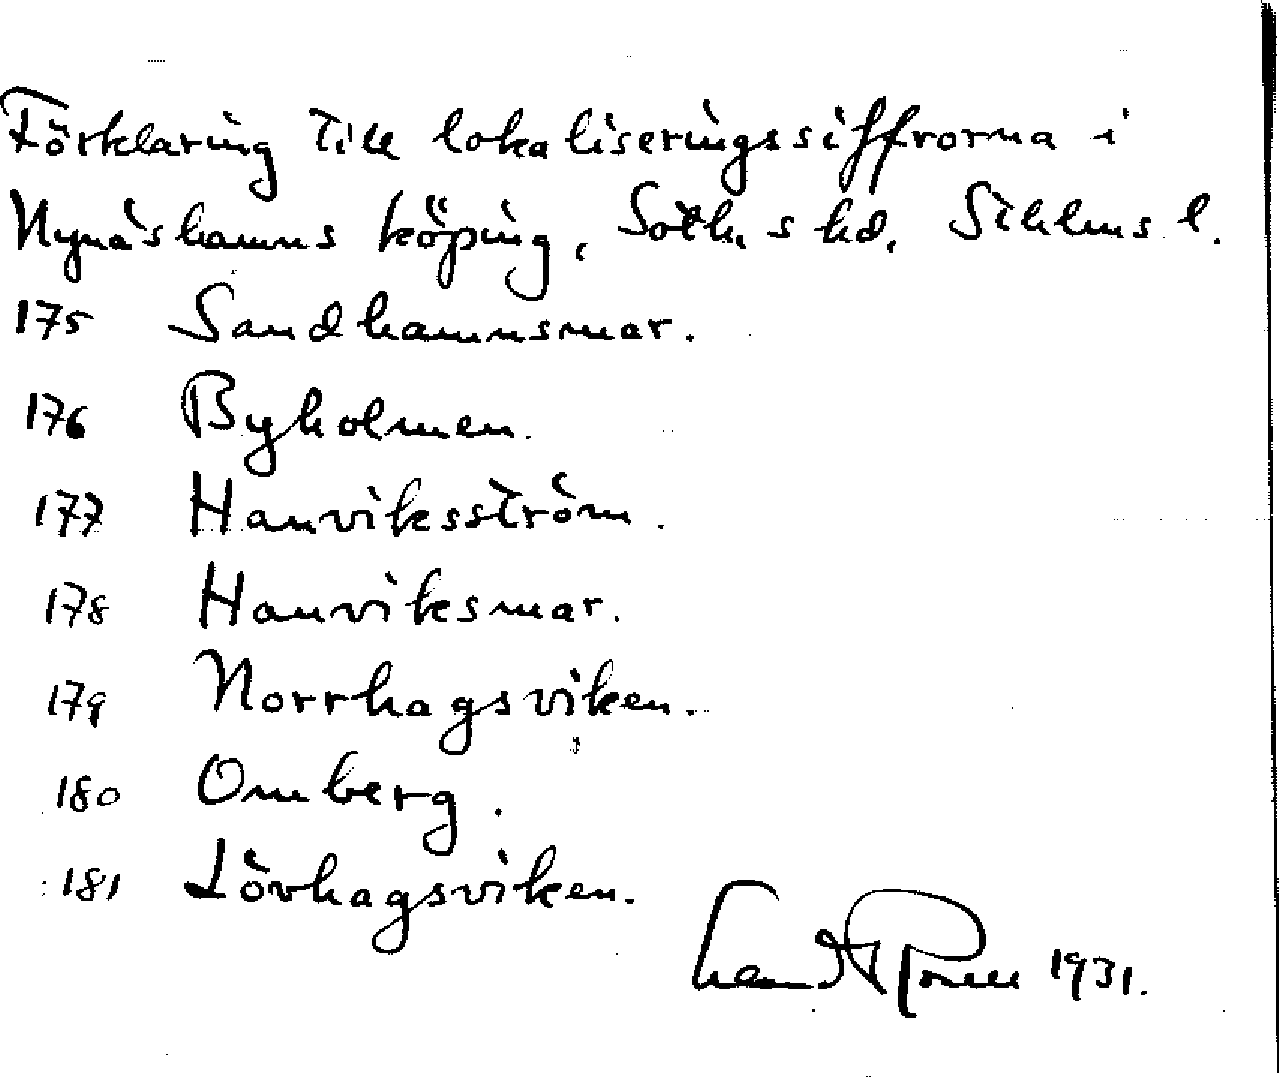 Förklaring till lokaliseringssiffrorna i
Nynäshamns köping, Soth. s hd, Sthlms l.
175 Sandhamnsmar.
176 Byholmen.
177 Hamviksström.
178 Hamviksmar.
179 Norrhagsviken.
180 Omberg.
181 Lövhagsviken.
1931.